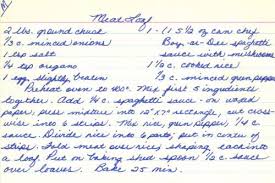 Meat Loaf
2 lbs. ground chuck
⅓ c. minced onions
1 tsp salt
¼ tsp oregano
1 egg, slightly beaten
1 - (15 ½ oz can) Chef
Boy-ar-Dee spaghetti
sauce with mushrooms
1 ½ c. cooked rice
⅓ c. minced green pepper
Preheat oven to 400°. Mix first 5 ingredients
together. Add ¼ c. spaghetti sauce - on waxed
paper, press mixture into 12" x 7" rectangle, cut cross-
wise into 6 strips. Mix rice, green pepper, ¼ c.
sauce. Divide rice into 6 parts; put in center of
strips. Fold meat over rice, shaping each into
a loaf. Put on baking sheet spoon ½ c. sauce
over loaves. Bake 25 min.